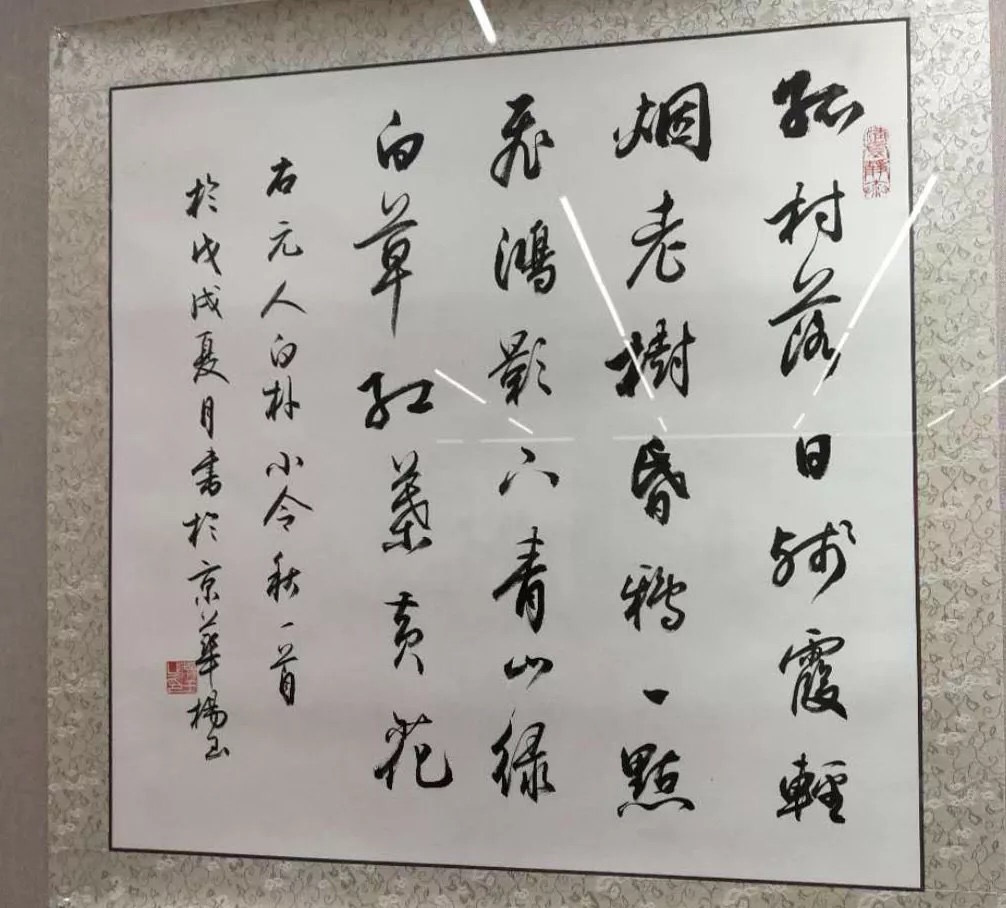 孤村落日殘霞輕
烟老樹昏鴉一點
飛鴻影下青山綠
白草紅葉黃花
右元人白朴小令秋一首
於戊戌夏月書於京華楊玉